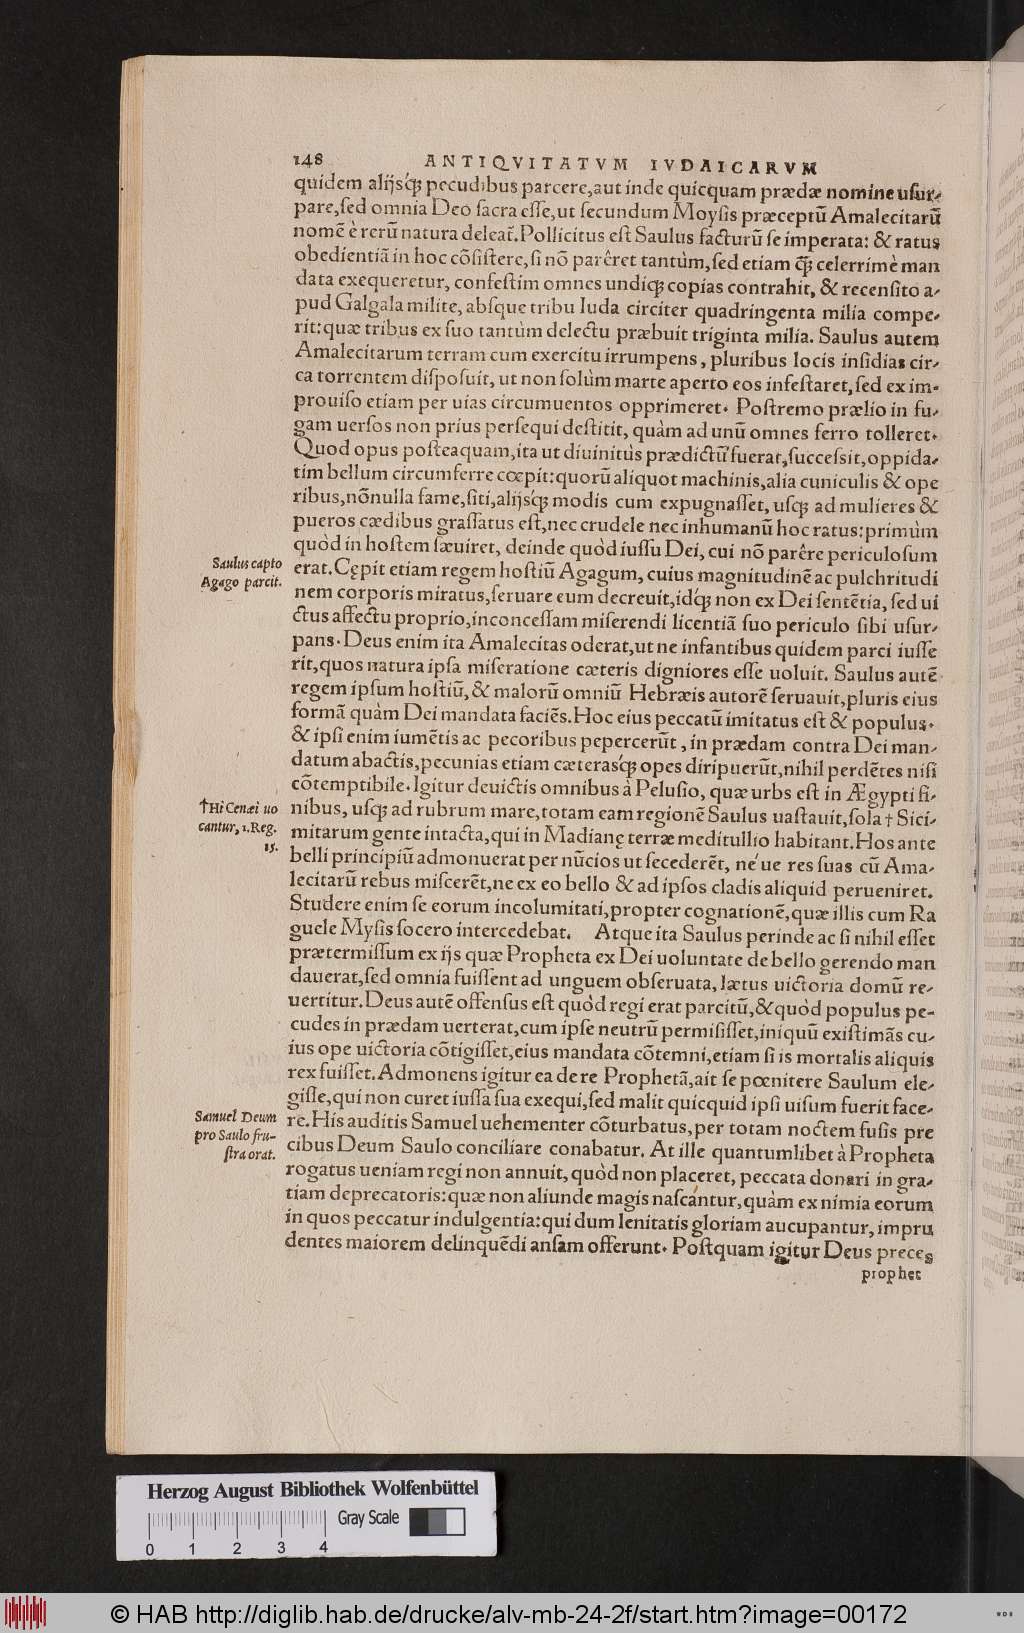 148 ANTIQVITATVM IVDAICARVM
quidem alijsq́ꝫ pecudibus parcere,aut inde quicquam prædæ nomine usur-
pare,sed omnia Deo sacra esse,ut secundum Moysis præceptũ Amalecitarũ
nomẽ è rerũ natura deleat̃. Pollicitus est Saulus facturũ se imperata: & ratus
obedientiã in hoc cõsistere, si nõ parêret tantùm, sed etiam q̃ꝫ celerrimè man
data exequeretur, confestim omnes undiqꝫ copias contrahit, & recensito a-
pud Galgala milite, absque tribu Iuda circiter quadringenta milia compe-
rit: quæ tribus ex suo tantùm delectu præbuit triginta milia. Saulus autem
Amalecitarum terram cum exercitu irrumpens, pluribus locis insidias cir-
ca torrentem disposuit, ut non solùm marte aperto eos infestaret, sed ex im-
prouiso etiam per uias circumuentos opprimeret. Postremo prælio in fu-
gam uersos non prius persequi destitit, quàm ad unũ omnes ferro tolleret.
Quod opus posteaquam, ita ut diuinitùs prædictũ fuerat, successit, oppida-
tim bellum circumferre cœpit: quorũ aliquot machinis, alia cuniculis & ope
ribus, nõnulla fame, siti, alijsq́ꝫ modis cum expugnasset, usqꝫ ad mulieres &
pueros cædibus grassatus est, nec crudele nec inhumanũ hoc ratus: primùm
quòd in hostem sæuiret, deinde quòd iussu Dei, cui nõ parêre periculosum
Saulus capto
Agago parcit.
erat. Cępit etiam regem hostiũ Agagum, cuius magnitudinẽ ac pulchritudi
nem corporis miratus, seruare eum decreuit, idq́ꝫ non ex Dei sentẽtia, sed ui
ctus affectu proprio, inconcessam miserendi licentiã suo periculo sibi usur-
pans. Deus enim ita Amalecitas oderat, ut ne infantibus quidem parci iusse
rit, quos natura ipsa miseratione cæteris digniores esse uoluit. Saulus autẽ
regem ipsum hostiũ, & malorũ omniũ Hebræis autorẽ seruauit, pluris eius
formã quàm Dei mandata faciẽs. Hoc eius peccatũ imitatus est & populus.
& ipsi enim iumẽtis ac pecoribus pepercerũt, in prædam contra Dei man-
datum abactis, pecunias etiam cæterasq́ꝫ opes diripuerũt, nihil perdẽtes nisi
cõtemptibile. Igitur deuictis omnibus à Pelusio, quæ urbs est in Ægypti fi-
† Hi Cenæi uo
cantur, 1. Reg.
15.
nibus, usqꝫ ad rubrum mare, totam eam regionẽ Saulus uastauit, sola † Sici-
mitarum gente intacta, qui in Madianę terræ meditullio habitant. Hos ante
belli principiũ admonuerat per nũcios ut secederẽt, néue res suas cũ Ama-
lecitarũ rebus miscerẽt, ne ex eo bello & ad ipsos cladis aliquid perueniret.
Studere enim se eorum incolumitati, propter cognationẽ, quæ illis cum Ra
guele Mysis socero intercedebat. Atque ita Saulus perinde ac si nihil esset
prætermissum ex ijs quæ Propheta ex Dei uoluntate de bello gerendo man
dauerat, sed omnia fuissent ad unguem obseruata, lætus uictoria domũ re-
uertitur. Deus autẽ offensus est quòd regi erat parcitũ, & quòd populus pe-
cudes in prædam uerterat, cum ipse neutrũ permisisset, iniquũ existimãs cu-
ius ope uictoria cõtigisset, eius mandata cõtemni, etiam si is mortalis aliquis
rex fuisset. Admonens igitur ea de re Prophetã, ait se pœnitere Saulum ele-
gisse, qui non curet iussa sua exequi, sed malit quicquid ipsi uisum fuerit face-
Samuel Deum
pro Saulo fru-
stra orat.
re. His auditis Samuel uehementer cõturbatus, per totam noctem fusis pre
cibus Deum Saulo conciliare conabatur. At ille quantumlibet à Propheta
rogatus ueniam regi non annuit, quòd non placeret, peccata donari in gra-
tiam deprecatoris: quæ non aliunde magis nascántur, quàm ex nimia eorum
in quos peccatur indulgentia: qui dum lenitatis gloriam aucupantur, impru
dentes maiorem delinquẽdi ansam offerunt. Postquam igitur Deus preces
prophet
Herzog August Bibliothek Wolfenbüttel
Gray Scale
0 1 2 3 4
© HAB http://diglib.hab.de/drucke/alv-mb-24-2f/start.htm?image=00172